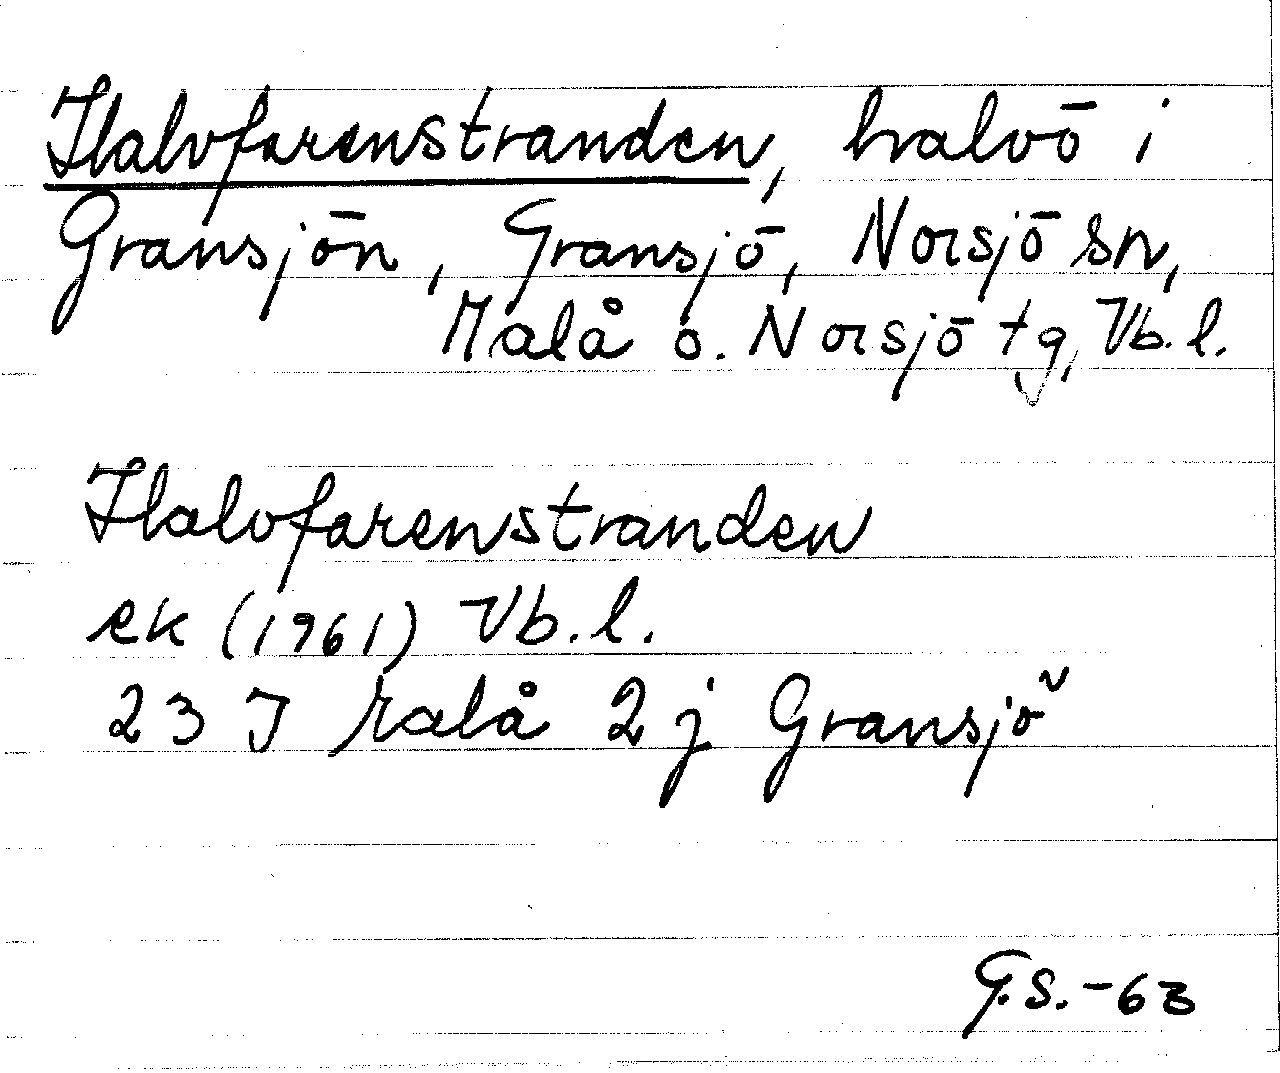 Halvfarenstranden, halvö i
Gransjön, Gransjö, Norsjö sn,
Malå o. Norsjö tg, Vb. l.
Halvfarenstranden
ek (1961) Vb. l.
23 J Malå 2 j Gransjö
G.S. -63